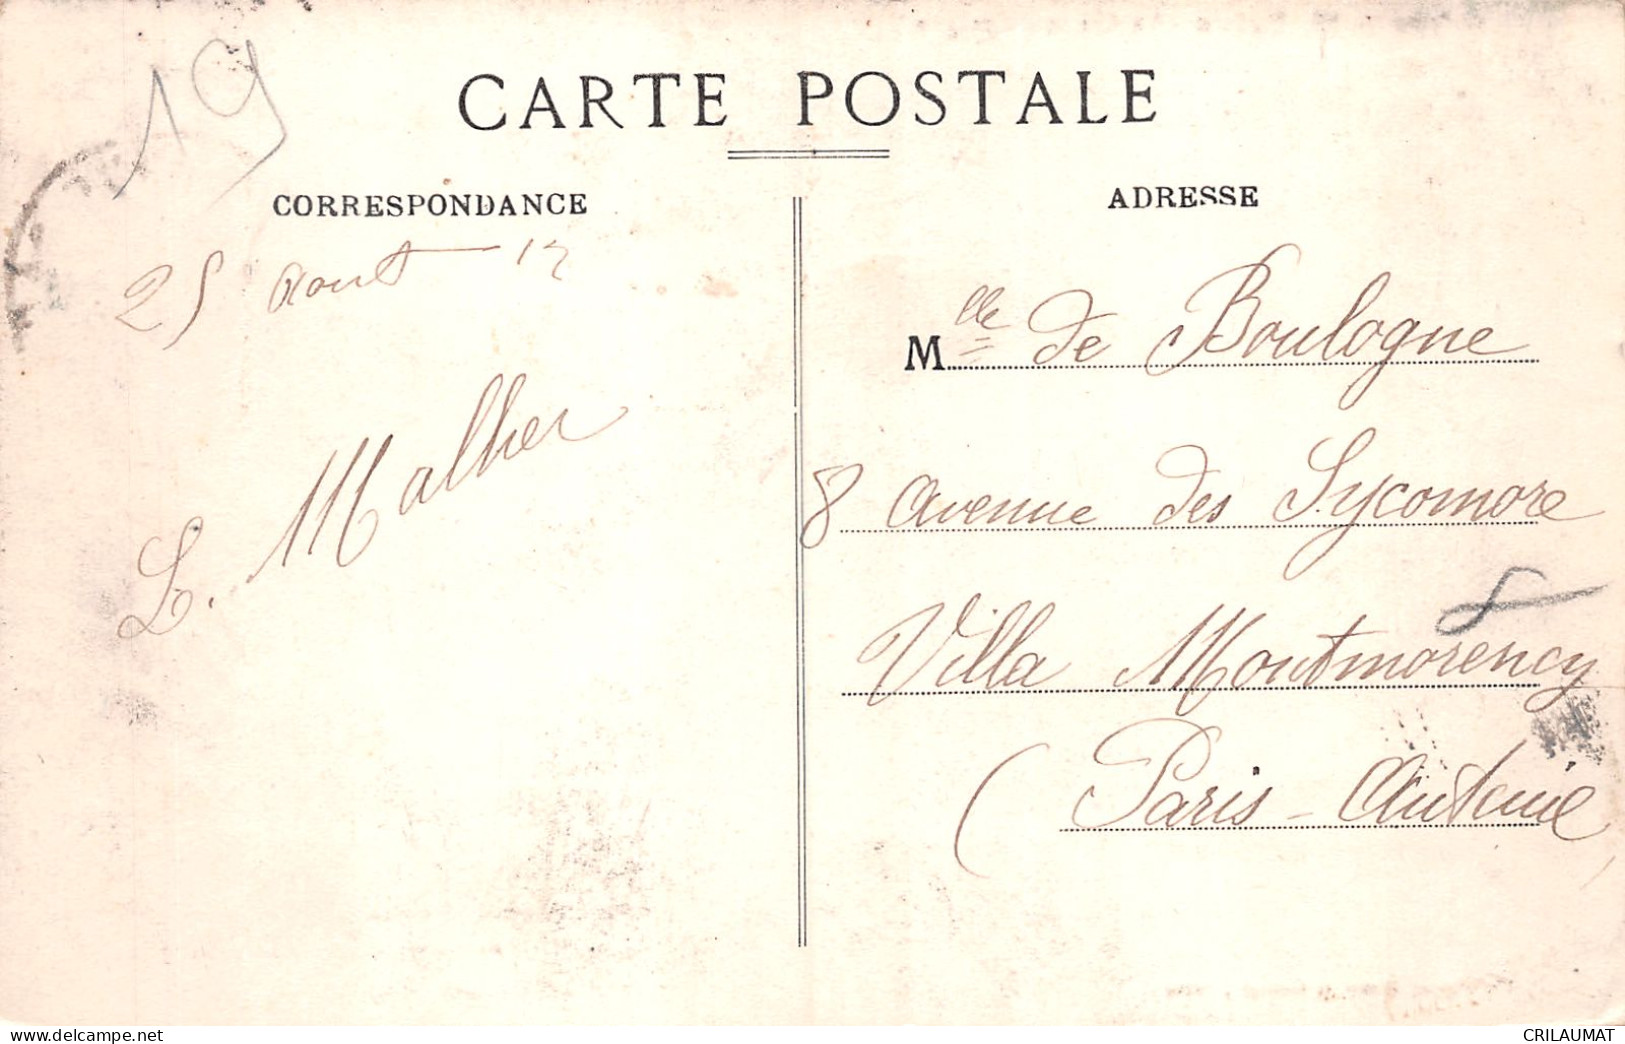 19
CARTE POSTALE
CORRESPONDANCE
ADRESSE
25 aout 12
L. Malher
Mlle de Boulogne
8 avenue des Sycomore
Villa Montmorency
8
(Paris - Auteuil)
CRILAUMAT